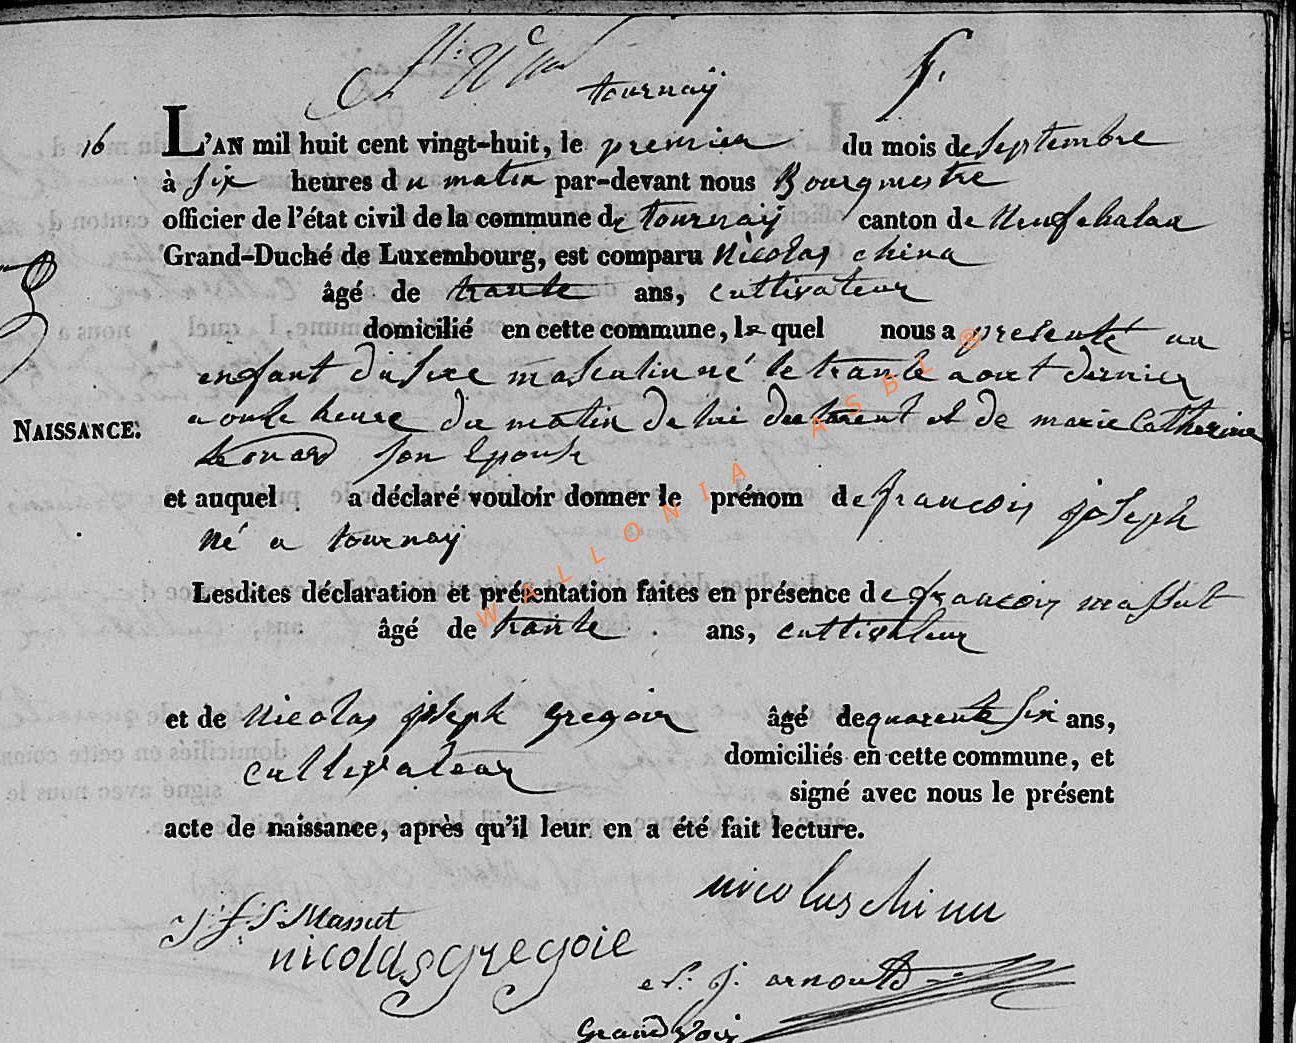 tournay
16 L'AN mil huit cent vingt-huit, le premier du mois de Septembre
à six heures du matin par-devant nous Bourgmestre
officier de l'état civil de la commune de tournay canton de
Grand-Duché de Luxembourg, est comparu Nicolas china
âgé de trante ans, cultivateur
domicilié en cette commune, le quel nous a présenté un
enfant du sexe masculin né le trante aout dernier
a onse heure du matin de lui declarent et de marie Catherine
NAISSANCE.
son Epouse
et auquel a déclaré vouloir donner le prénom de francois joseph
né a tournay
Lesdites déclaration et présentation faites en présence de francois massut
âgé de trante ans, cultivateur
et de Nicolas joseph gregoir âgé de quarente six ans,
cultivateur domiciliés en cette commune, et
signé avec nous le présent
acte de naissance, après qu'il leur en a été fait lecture.
nicolas chinu
Massut
nicolas gregoie
j. arnould
WALLONIA ASBL ®